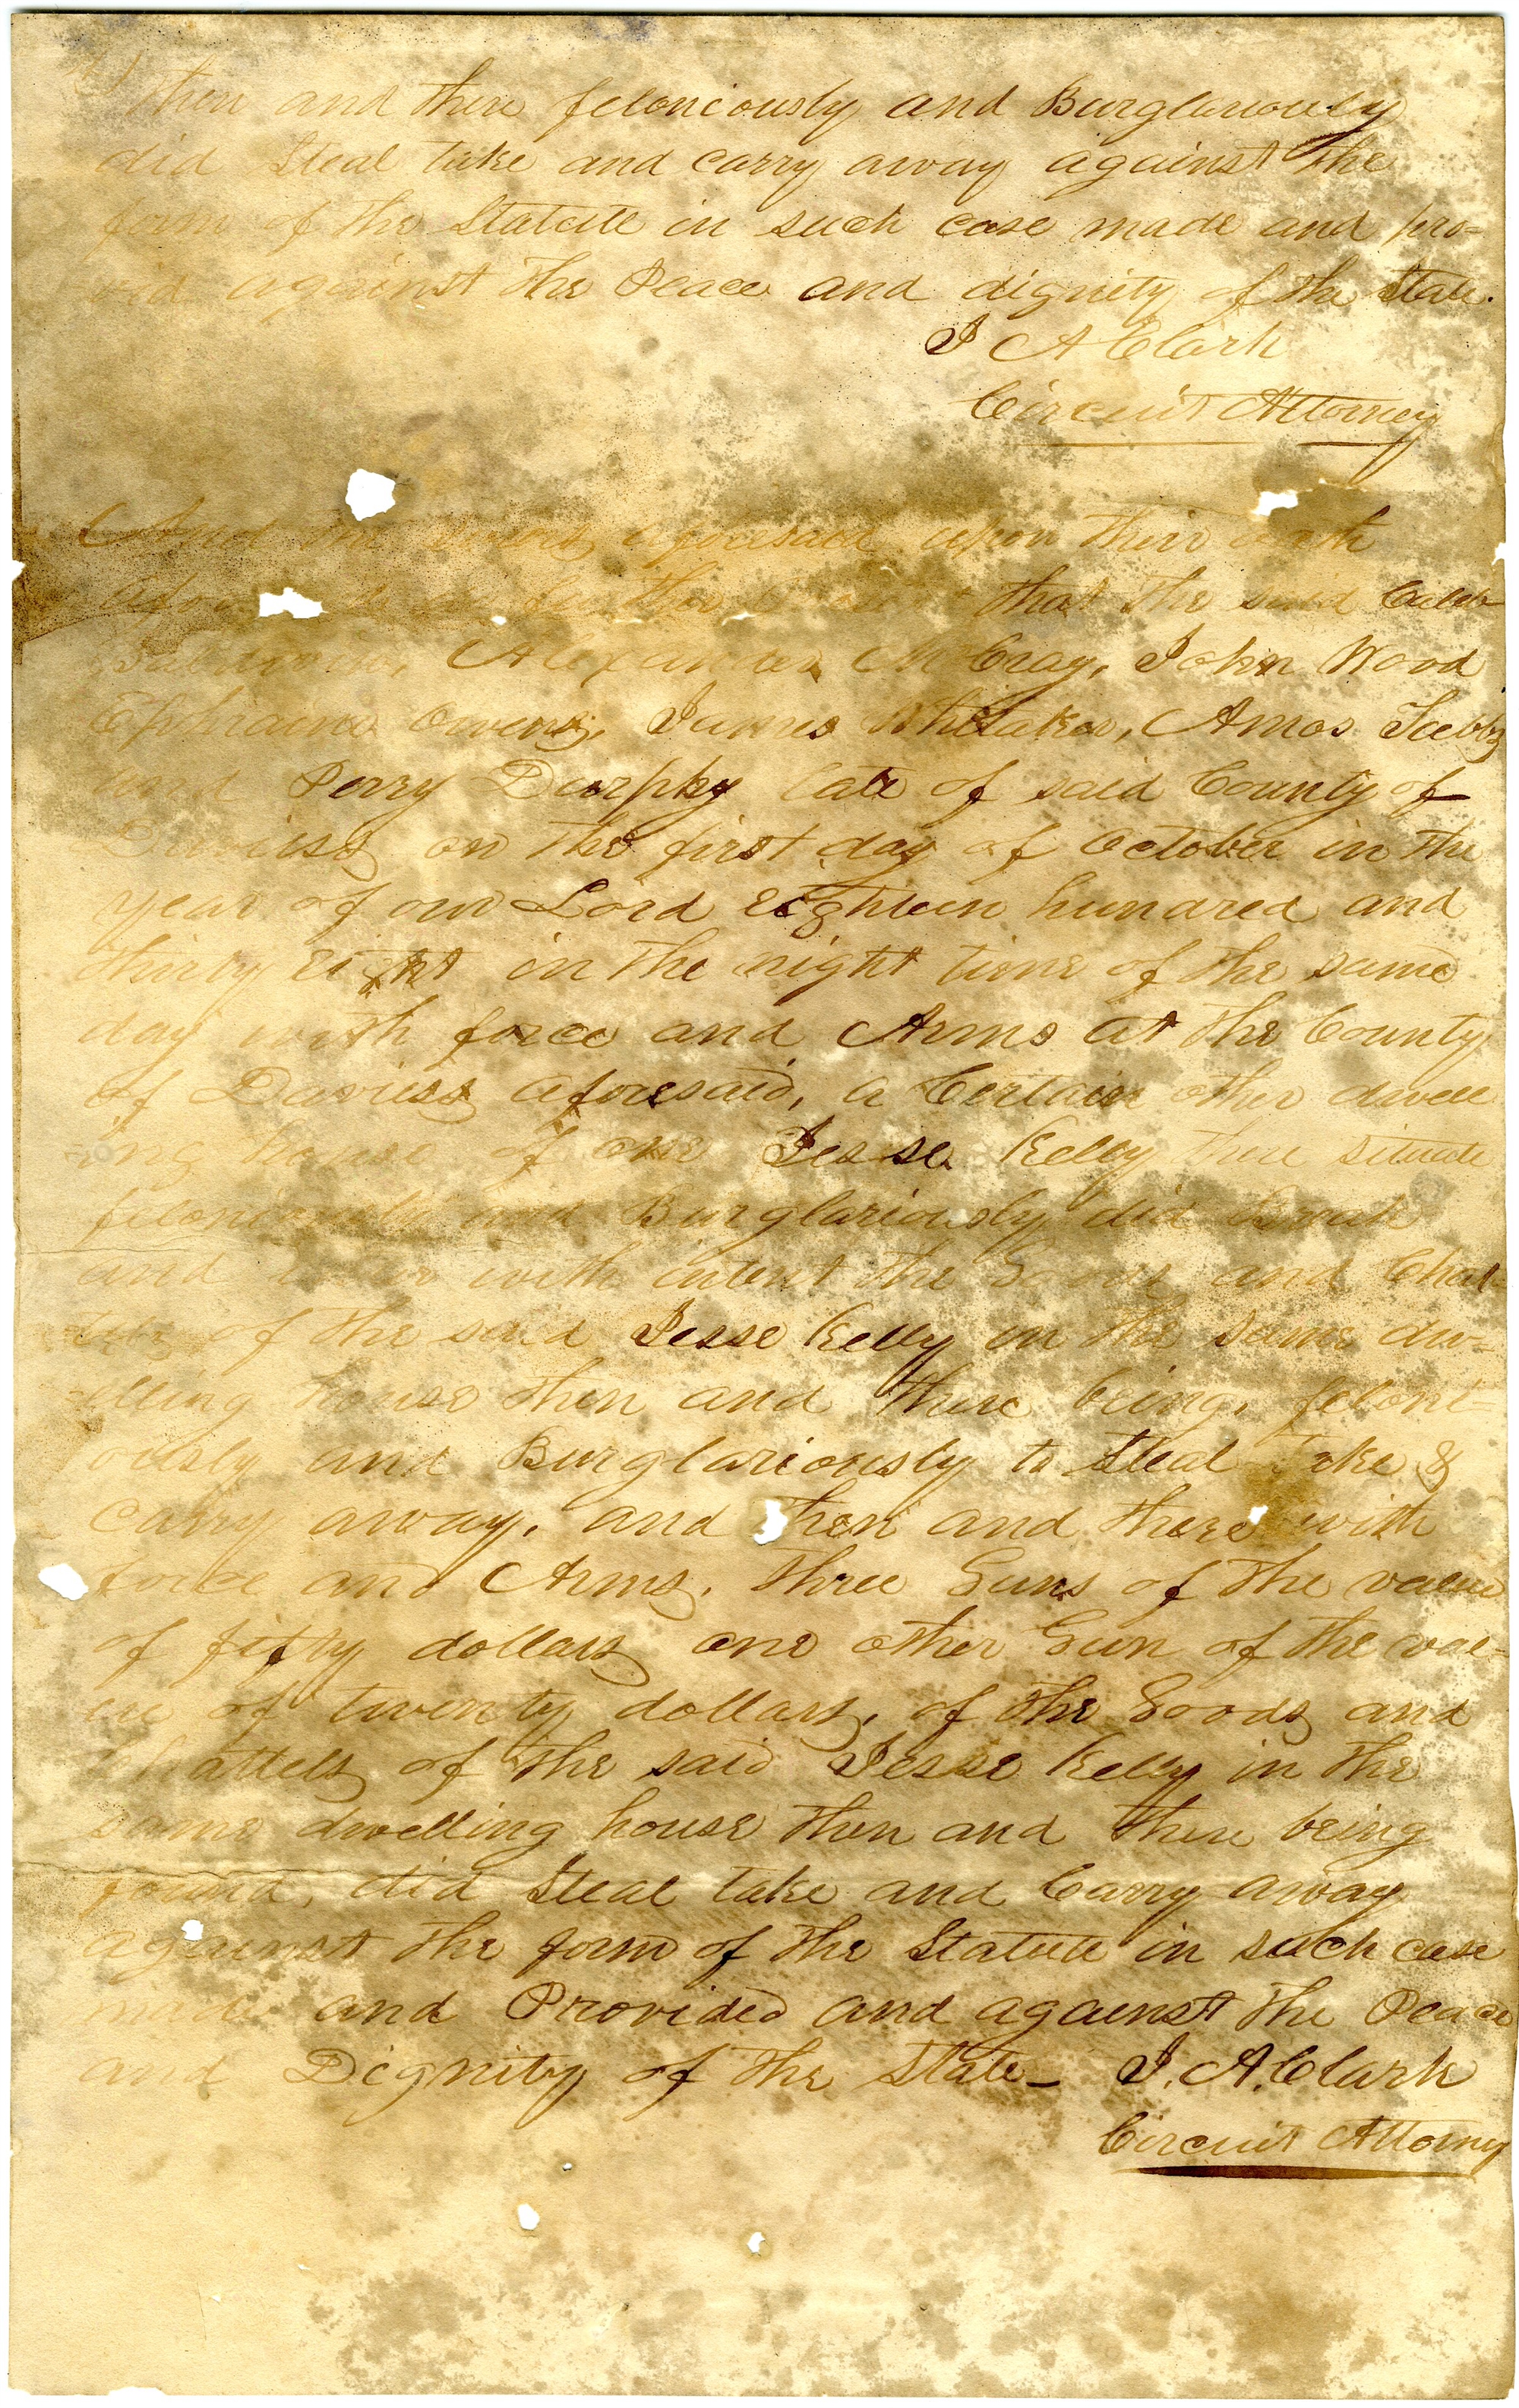 then and there feloniously and Burglariously
did Steal take and carry away against the
form of the Statute in such case made and pro=
vid against the Peace and dignity of the State.
J A Clark
Circuit Attorney
And the Jurors aforesaid upon their oath
that the said Caleb
Baldwin, Alexander McCray, John Wood
Ephraim Owens, James Whitaker, Amos Tubbs
and Perry Durphy late of said County of
Daviess on the first day of October in the
year of our Lord eighteen hundred and
thirty eight in the night time of the same
day with force and Arms at the County
of Daviess aforesaid, a Certain other dwell
ing house of one Jesse Kelly there situate
feloniously and Burglariously did Break
and with intent the Goods and Chat
tels of the said Jesse Kelly in the same dw=
elling house then and there being, feloni=
ously and Burglariously to Steal take &
carry away, and then and there with
force and Arms, three Guns of the value
of fifty dollars one other Gun of the val=
ue of twenty dollars, of the Goods and
Chattels of the said Jesse Kelly in the
same dwelling house then and there being
found, did Steal take and Carry away
against the form of the Statute in such case
made and Provided and against the Peace
and Dignity of the State_ J. A. Clark
Circuit Attorney